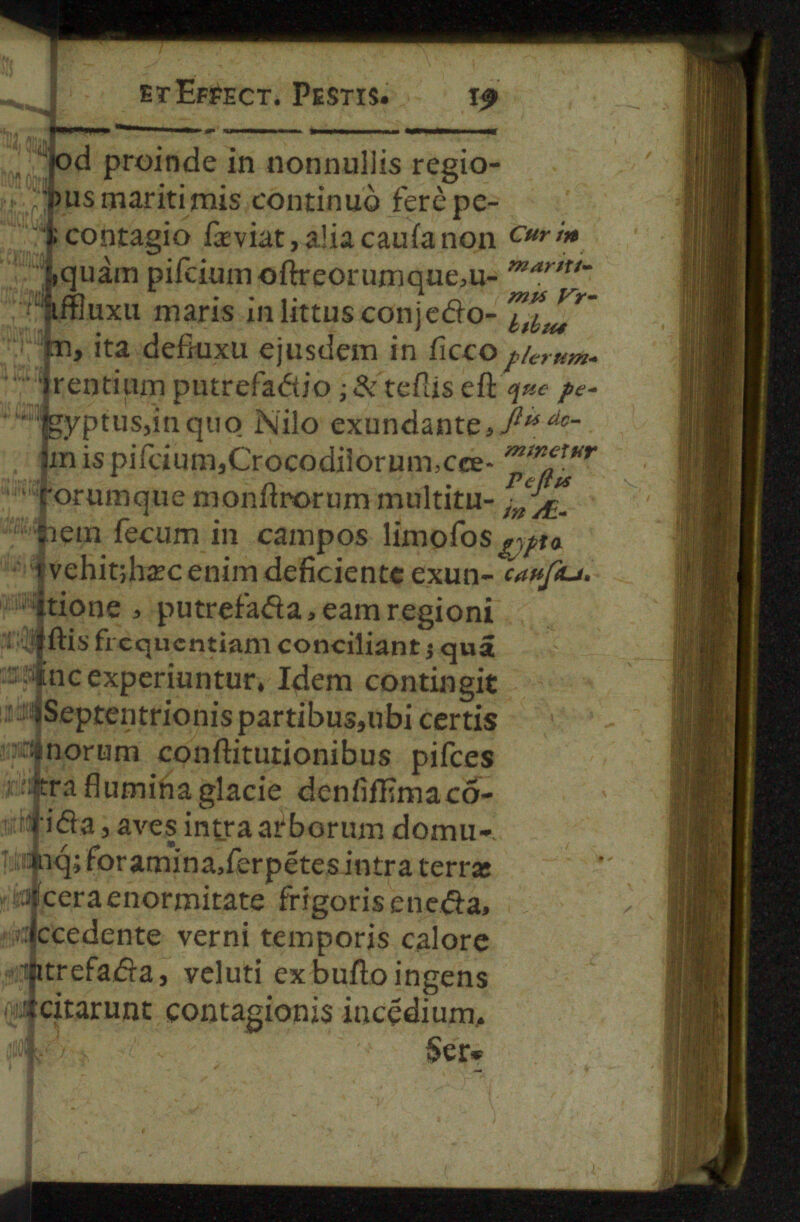 ET EFFECT. PESTIS. 19
od proinde in nonnullis regio-
bus maritimis continuò ferè pe-
contagio ſæviat, alia cauſa non
quàm piſcium oſtreorumque, u-
affluxu maris in littus conjecto-
m, ita defluxu ejusdem in ſicco
rentium putrefactio; & teſtis eſt
gyptus, in quo Nilo exundante,
m is piſcium, Crocodilorum, cœ-
rorumque monſtrorum multitu-
nem ſecum in campos limoſos
vehit; hæc enim deficiente exun-
tione, putrefacta, eam regioni
ſtis frequentiam conciliant; quâ
nc experiuntur. Idem contingit
Septentrionis partibus, ubi certis
norum conſtitutionibus piſces
tra flumina glacie denſiſſima cõ-
icta, aves intra arborum domu-
nq; foramina, ſerpẽtes intra terræ
cera enormitate frigoris enecta,
ccedente verni temporis calore
trefacta, veluti ex buſto ingens
citarunt contagionis incẽdium.
Ser-
Cur in
mariti-
mis Vr-
bibus
plerum-
que pe-
ſtis do-
minetur
Peſtis
in Æ-
gypto
cauſa.